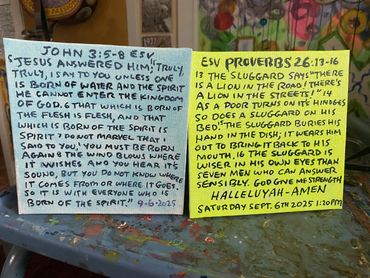 JOHN 3:5-8 ESV
"JESUS ANSWERED HIM, "TRULY,
TRULY, I SAY TO YOU UNLESS ONE
IS BORN OF WATER AND THE SPIRIT
HE CANNOT ENTER THE KINGDOM
OF GOD. 6 THAT WHICH IS BORN OF
THE FLESH IS FLESH, AND THAT
WHICH IS BORN OF THE SPIRIT IS
SPIRIT. 7 DO NOT MARVEL THAT I
SAID TO YOU, 'YOU MUST BE BORN
AGAIN. 8 THE WIND BLOWS WHERE
IT WISHES AND YOU HEAR IT'S
SOUND, BUT YOU DO NOT KNOW WHERE
IT COMES FROM OR WHERE IT GOES.
SO IT IS WITH EVERYONE WHO IS
BORN OF THE SPIRIT." 9-6-2025
ESV PROVERBS 26:13-16
13 THE SLUGGARD SAYS "THERE
IS A LION IN THE ROAD! THERE'S
A LION IN THE STREETS!" 14
AS A DOOR TURNS ON IT'S HINGES
SO DOES A SLUGGARD ON HIS
BED. 15 THE SLUGGARD BURIES HIS
HAND IN THE DISH; IT WEARS HIM
OUT TO BRING IT BACK TO HIS
MOUTH, 16 THE SLUGGARD IS
WISER IN HIS OWN EYES THAN
SEVEN MEN WHO CAN ANSWER
SENSIBLY. GOD GIVE ME STRENGTH
HALLELUYAH-AMEN
SATURDAY SEPT. 6TH 2025 1:20PM